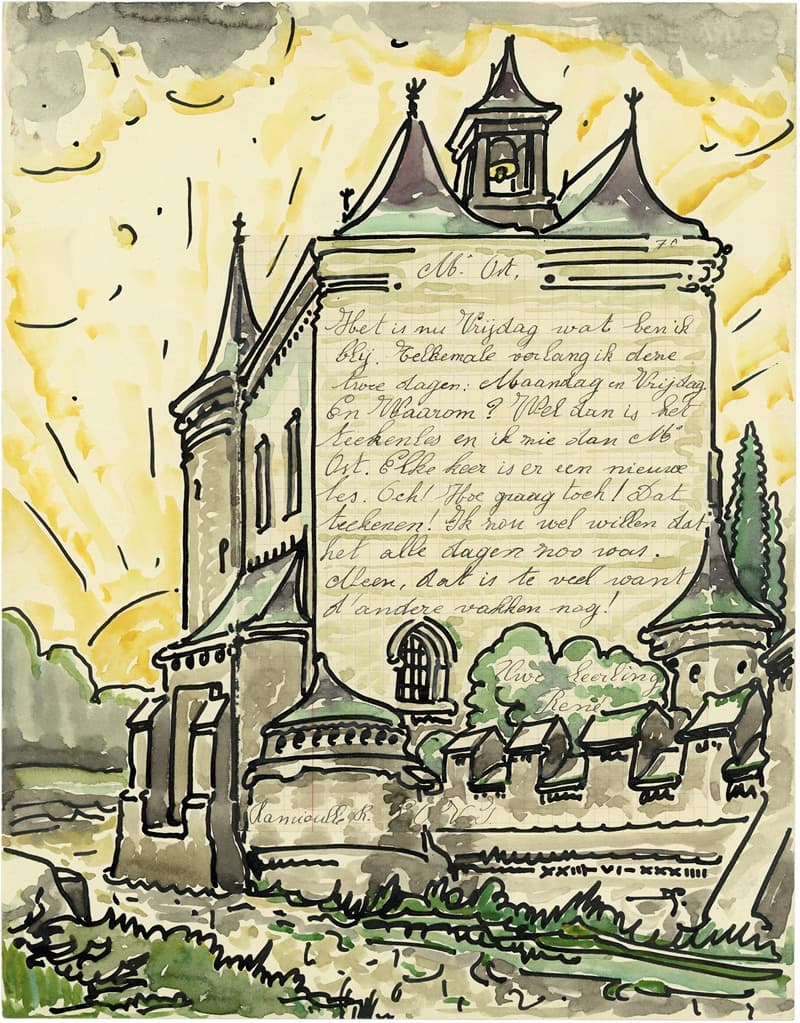 Mr. Ost,
Het is nu Vrijdag wat ben ik
blij. Telkemale verlang ik deze
twee dagen: Maandag en Vrijdag.
En Waarom? Wel dan is het
teekenles en ik zie dan Mr
Ost. Elke keer is er een nieuwe
les. Och! Hoe graag toch! Dat
teekenen! Ik zou wel willen dat
het alle dagen zoo was.
Alleen, dat is te veel want
d'andere vakken nog!
Uwe Leerling
René
XXIII-VI-XXXIIII